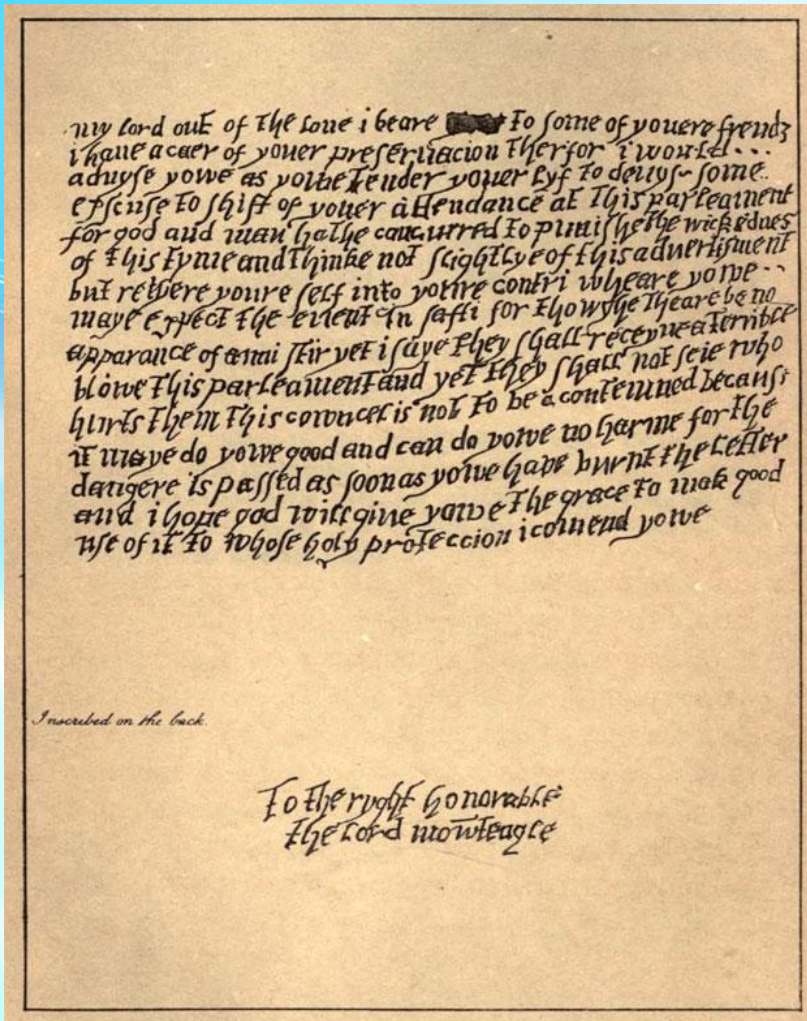 my lord out of the loue i beare to some of youere frends
i haue a caer of youer preseruacion therfor i would...
aduyse yowe as yowe tender youer lyf to deuys some
exscuse to shift of youer attendance at this parleament
for god and man hathe concurred to punishe the wickednes
of this tyme and thinke not slightlye of this advertisment
but retyere youre self into youre contri wheare yowe
maye expect the euent in safti for thowghe theare be no
apparance of anni stir yet i saye they shall receyue a terrible
blowe this parleament and yet they shall not seie who
hurts them this cowncel is not to be a contemned becaus
it maye do yowe good and can do yowe no harme for the
dangere is passed as soon as yowe have burnt the letter
and i hope god will giue yowe the grace to mak good
use of it to whose holy proteccion i comend yowe
Inscribed on the back.
To the ryght honorable
the lord mowteagle